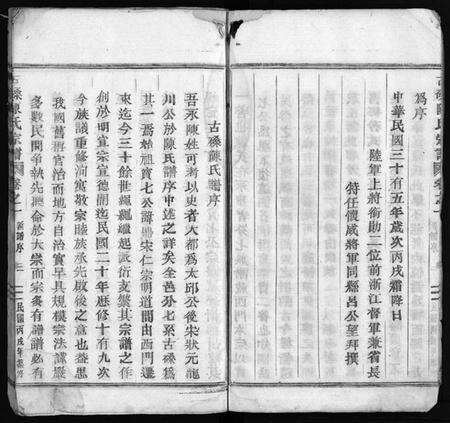 為序
中華民國三十有五年歲次丙戌霜降日
陸軍上將銜勛二位前浙江督軍兼省長
特任懷威將軍同縣呂公望拜撰
古磉陳氏宗譜
卷之一
古磉陳氏譜序
吾永陳姓可考以史者大都為太邱公後宋狀元龍
川公於陳氏譜序中述之詳矣全邑分七系古磉為
其一焉始祖賁七公諱昺宋仁宗明道間由西門遷
來迄今三十餘世繩繩繼起派衍支繁其宗譜之作
創於明宣宗宣德間迄民國二十年歷修十有九次
今族議重修洵寓敬宗睦族承先啟後之意也蓋思
我國舊無官治而地方自治實早具規模宗法謹嚴
多數民間爭執先取命於大宗而宗各有譜譜必有
古磉陳氏宗譜
卷之一
舊譜序
民國丙戌年重修